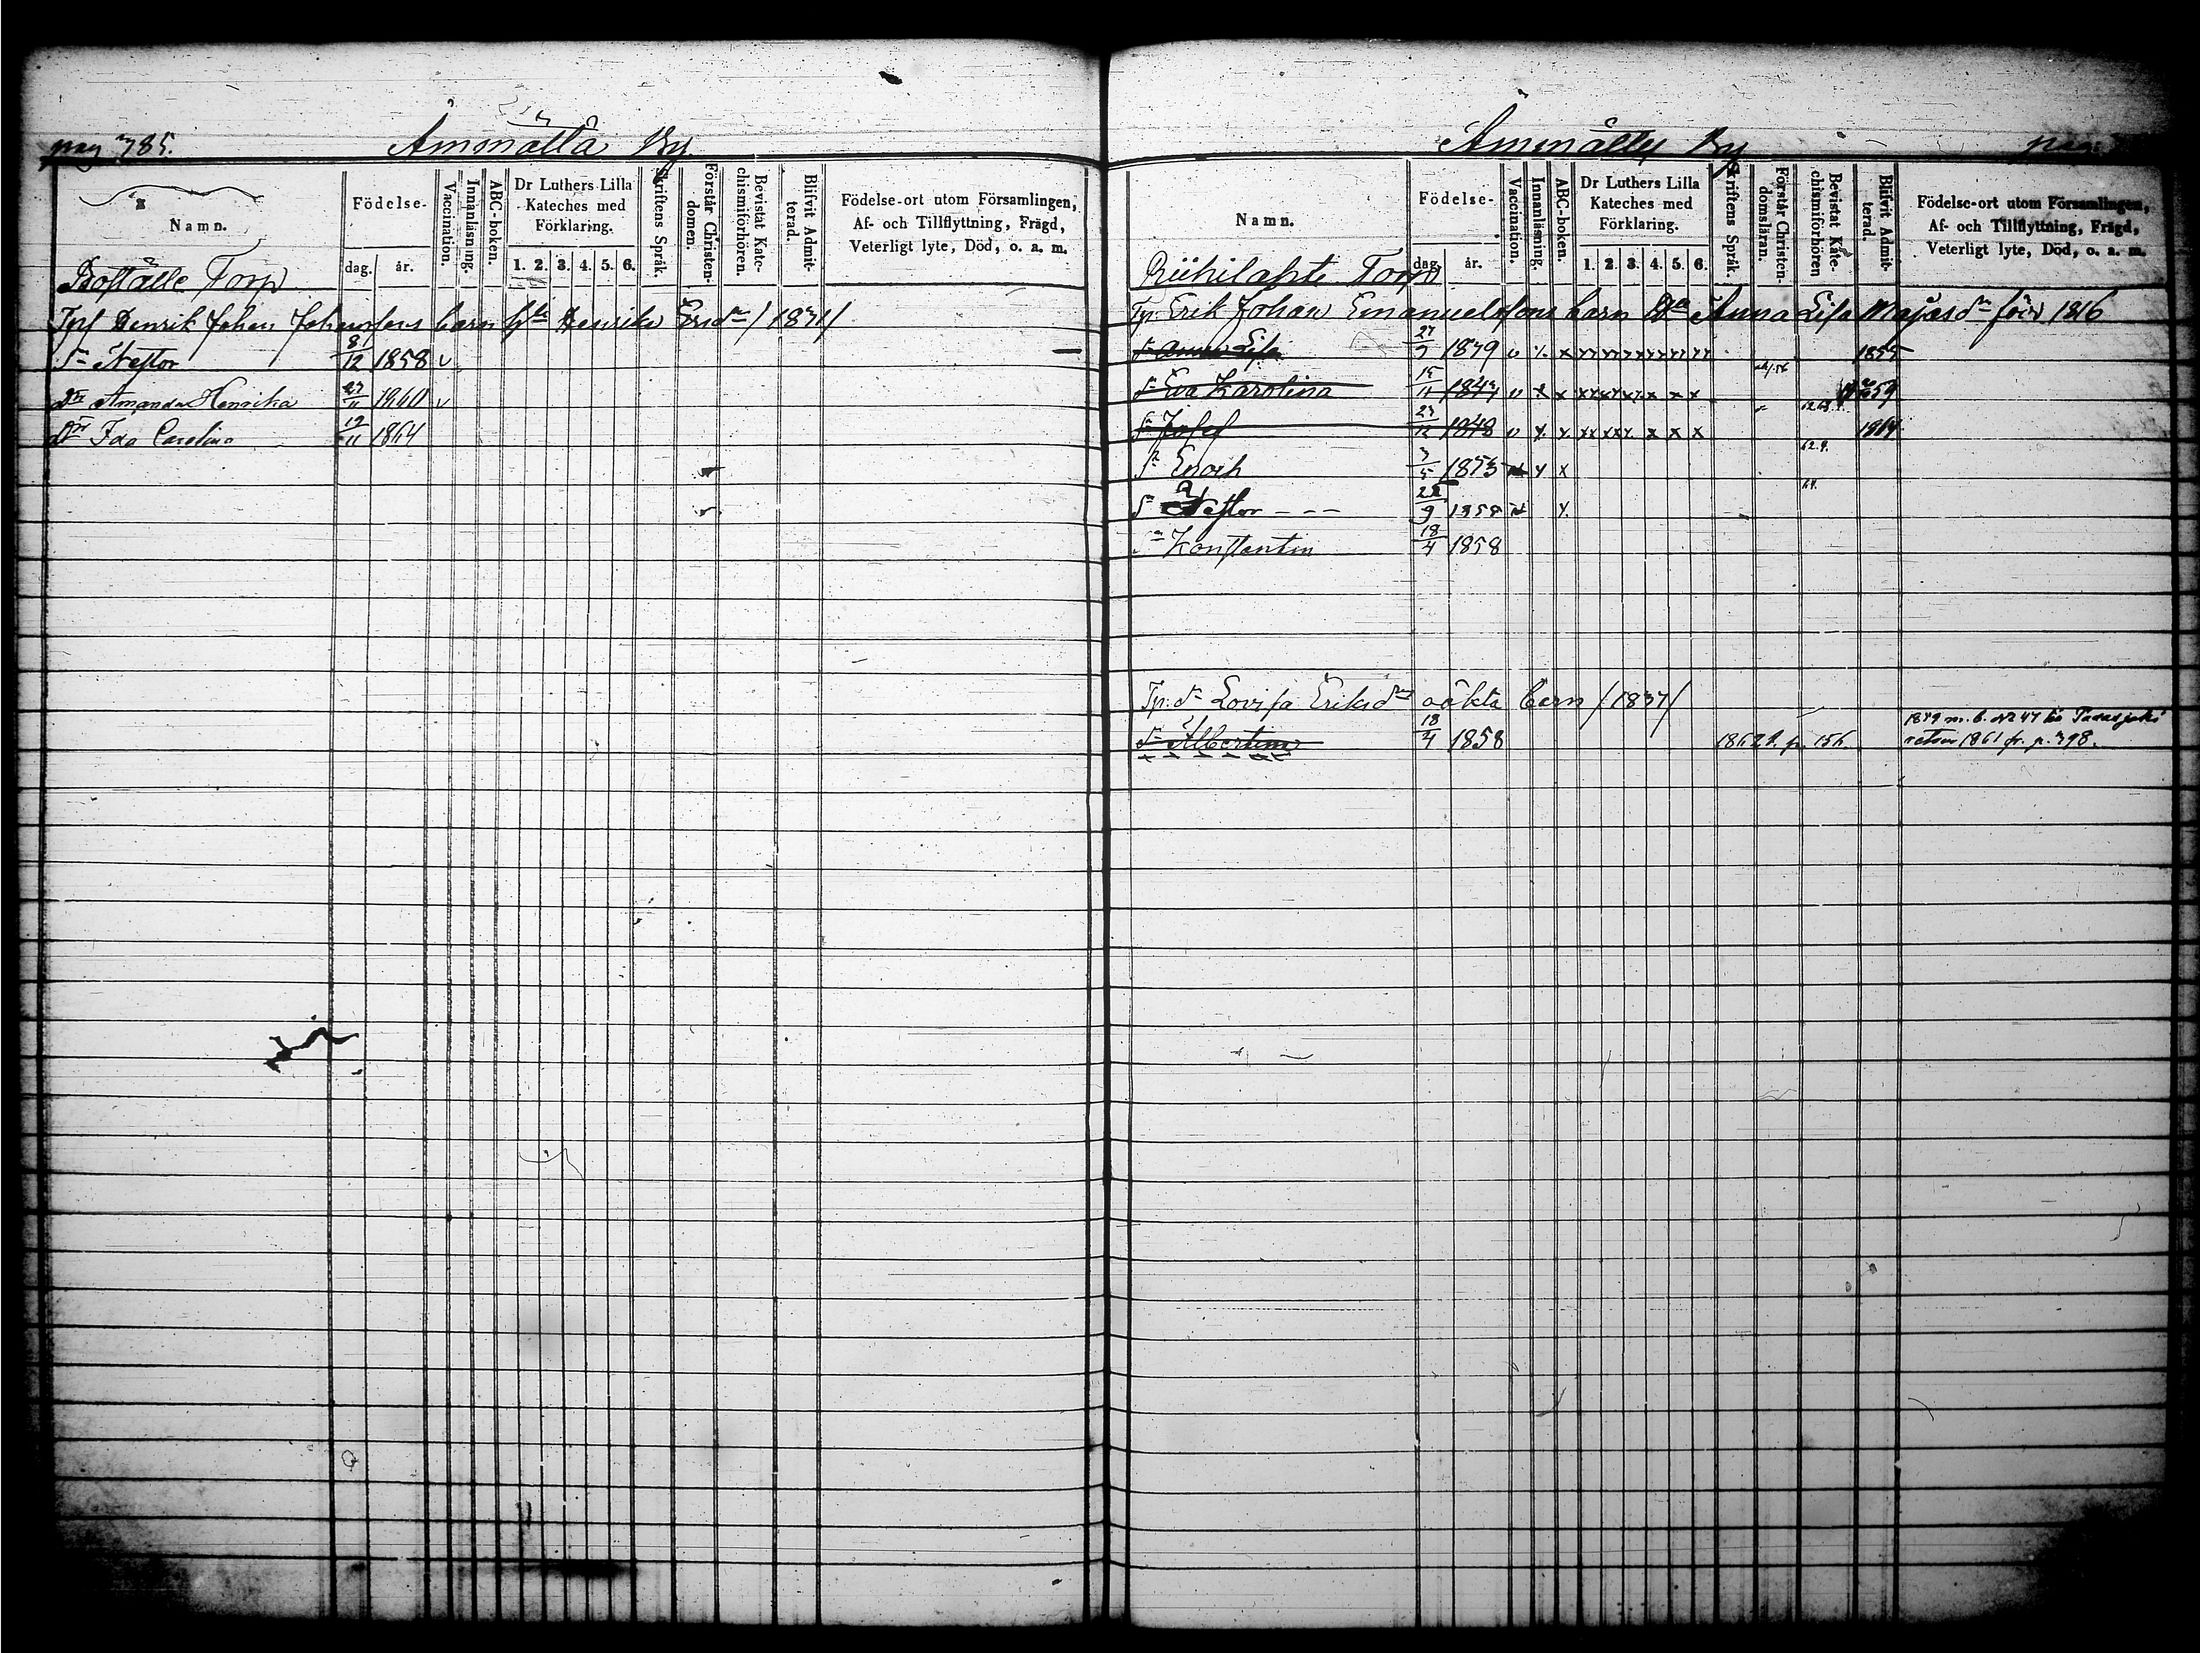 pag 785.
Ämmälla By
Namn.
Födelse-
dag.
år.
Vaccination.
Innanläsning.
ABC-boken.
Dr Luthers Lilla
Kateches med
Förklaring.
1. 2. 3. 4. 5. 6.
Skriftens Språk.
Förstår Christen-
domen.
Bevistat Kate-
chismiförhören.
Blifvit Admit-
terad.
Födelse-ort utom Församlingen,
Af- och Tillflyttning, Frägd,
Veterligt lyte, Död, o. a. m.
Boställe Torp
Henrik Johan Johanssons barn Henrika /1831/
Sn Nestor 8/12 1858 v
Dr Amanda Henrika 27/11 1860 v
Dr Ida Carolina 19/11 1864
Ämmälly By
pag.
Namn.
Födelse-
dag.
år.
Vaccination.
Innanläsning.
ABC-boken.
Dr Luthers Lilla
Kateches med
Förklaring.
1. 2. 3. 4. 5. 6.
Skriftens Språk.
Förstår Christen-
domsläran.
Bevistat Kate-
chismiförhören
Blifvit Admit-
terad.
Födelse-ort utom Församlingen,
Af- och Tillflyttning, Frägd,
Veterligt lyte, Död, o. a. m.
Riihilahti Torp
Tp. Erik Johan Emanuelssons barn Anna Lisa född 1816
Anna Lisa 27/9 1839 v x x 1855
Eva Karolina 15/11 1844 v x x x x 1859
Sn Josef 27/12 1848 v x x x x x 1864
Sn Enoch 3/5 1853 x x
Sn Nestor - - - 22/9 1858 x
Sn Konstantin 18/4 1858
Lovisa Eriksdrs oäkta barn /1837/
Albertina 18/4 1858 1862 fr. p. 156
1859 m. b. N 47 till
retour 1861 fr. p. 798.